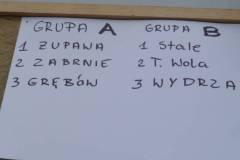 GRUPA A GRUPA B
1 ZUPAWA 1 Stale
2 ZABRNIE 2 T. Wola
3 GRĘBÓW 3 WYDRZA